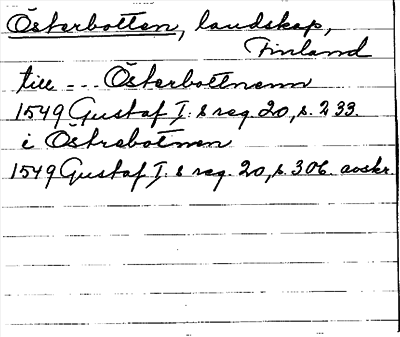 Österbotten, landskap,
Finland
till - - - Österbottnenn
1549 Gustaf I:s reg. 20, s. 233.
i Östrebotnen
1549 Gustaf I:s reg. 20, s. 306. avskr.